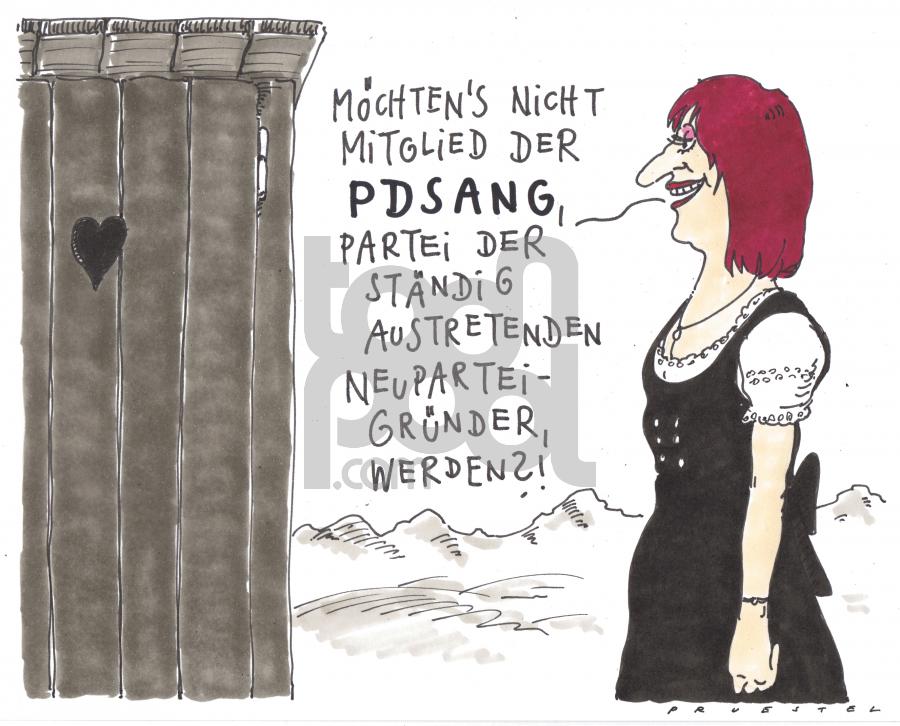 MÖCHTEN'S NICHT
MITGLIED DER
PDSANG,
PARTEI DER
STÄNDIG
AUSTRETENDEN
NEUPARTEI-
GRÜNDER,
WERDEN?!
toonpool
.com
PRUESTEL